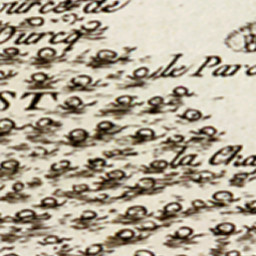 ource de
Ourcq
le Parc
ST
la Cha